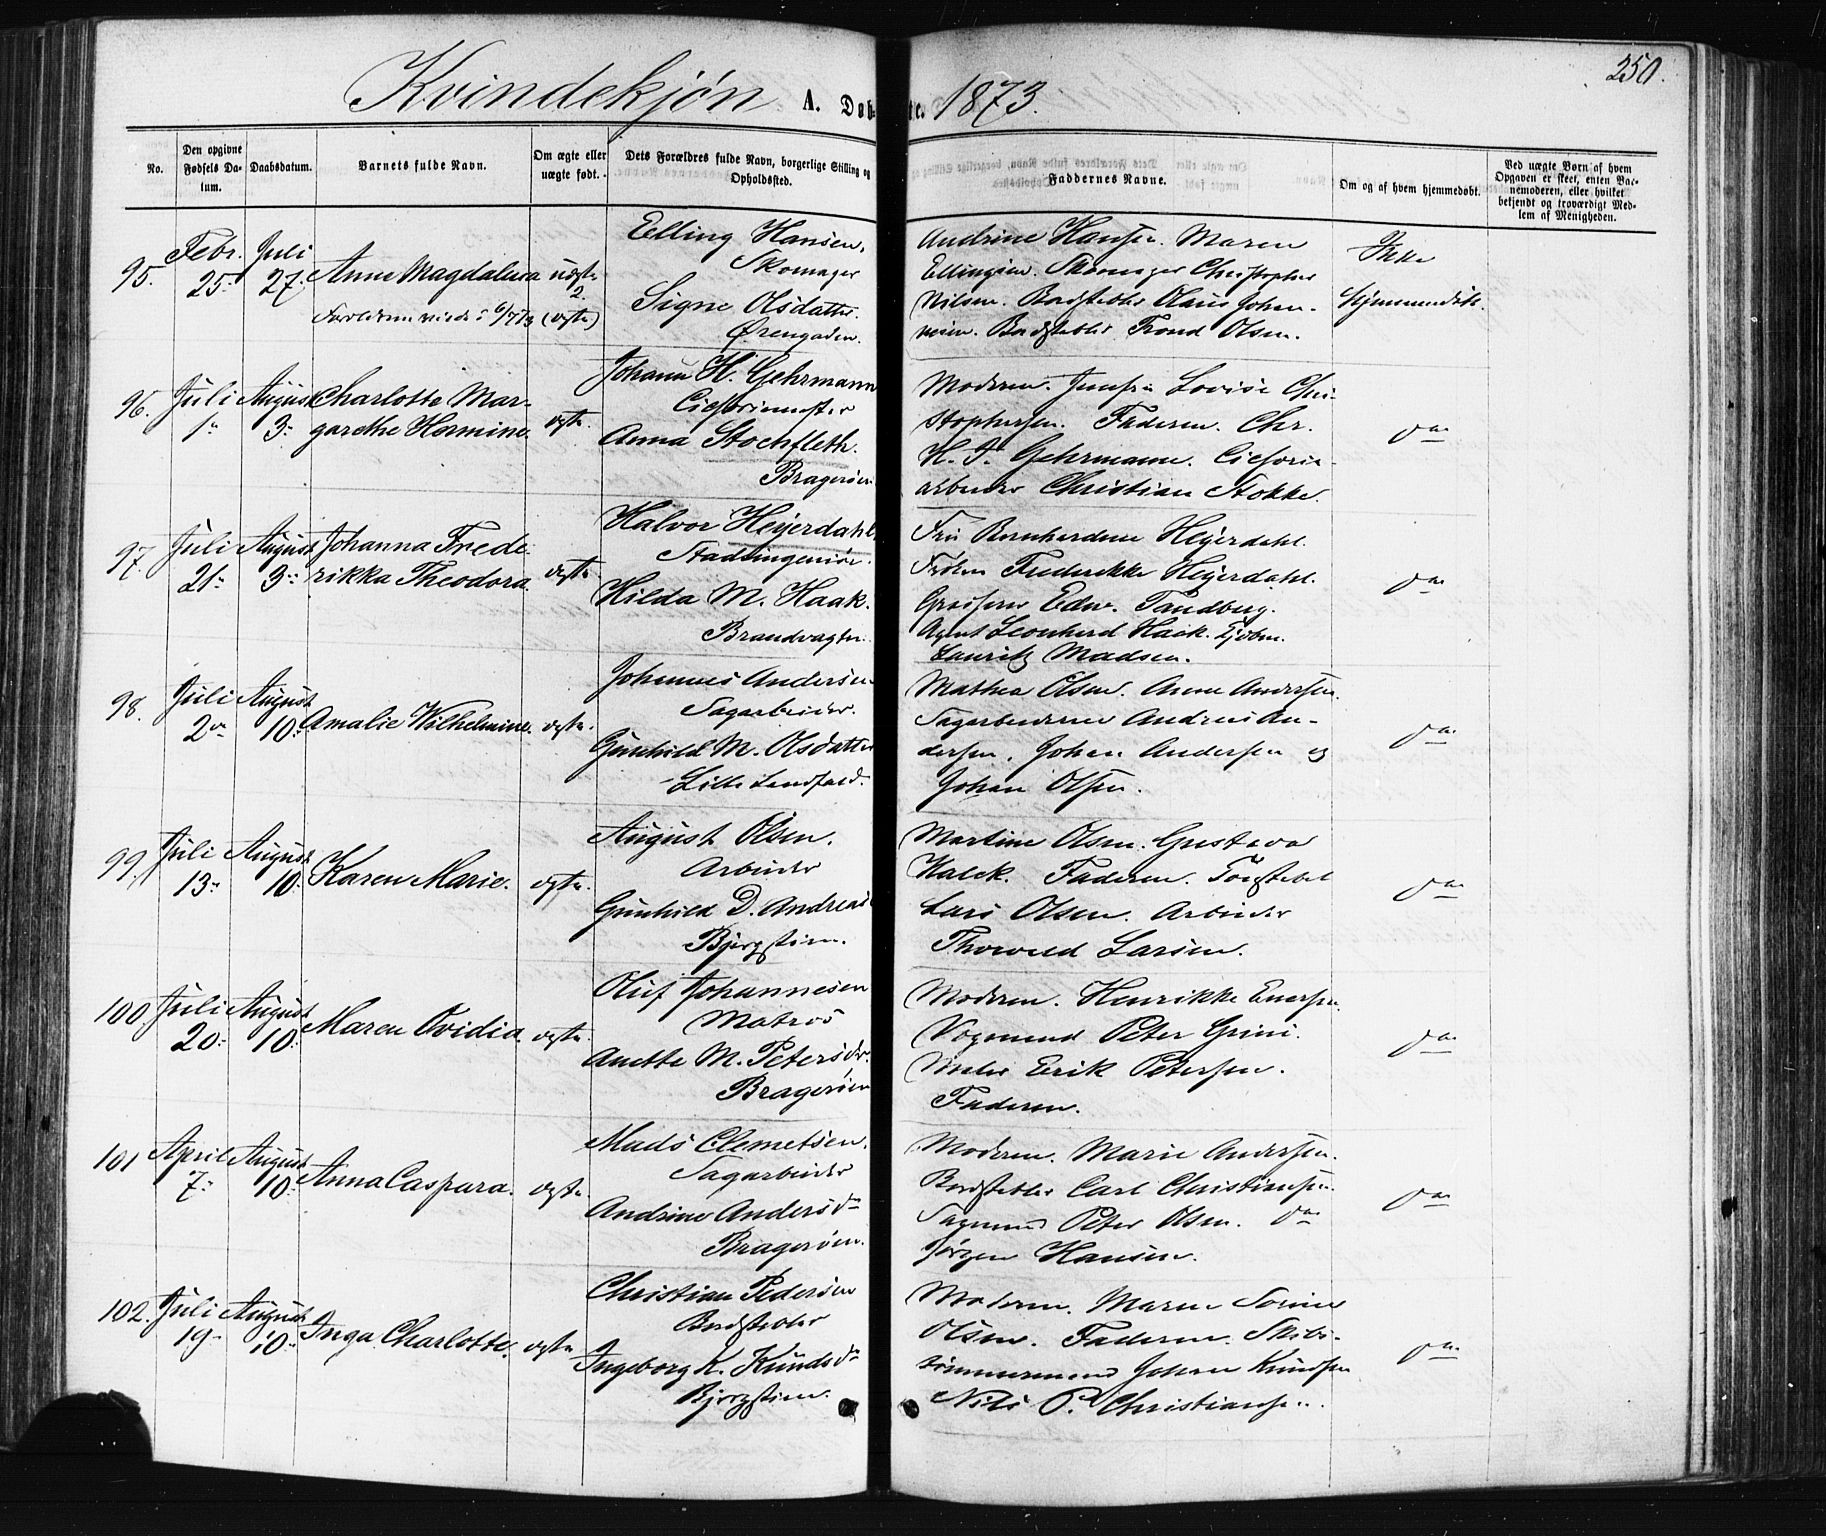 250.
Kvindekjøn A. Døbte. 1873.
No.
Den opgivne Fødsels Datum.
Daabsdatum.
Barnets fulde Navn.
Om ægte eller uægte født.
Dets Forældres fulde Navn, borgerlige Stilling og Opholdsted.
Faddernes Navne.
Om og af hvem hjemmedøbt.
Ved uægte Børn af hvem Opgaven er skeet, enten Barnemoderen, eller hvilket bekjendt og troværdigt Medlem af Menigheden.
95. Febr. 25 Juli 27. Anne Magdalena uægte 2. (ægte)
Forældrene viede 6/7 73
Elling Hansen,
Skomager
Signe Olsdatter.
Ørengaden.
Andrine Hansen. Maren
Ellingsen. Skomager Christopher
Nilsen. Bordstabler Olaus Johan-
nesen. Bordstabler Trond Olsen.
Ikke
hjemmedøbt.
96. Juli 1 August 3 Charlotte Mar-
garethe Hermine. ægte.
Johann H. Gehrmann
Cichorimester
Anna Stochfleth.
Bragerøen
Moderen. Jomfru Lovise Chri-
stophersen. Faderen. Chr.
H. J. Gehrmann. Cichorie-
arbeider Christian Stokke.
do
97. Juli 21 August 3 Johanna Frede-
rikka Theodora. ægte.
Halvor Heyerdahl
Stadsingeniør.
Hilda M. Haak.
Brandvagten.
Fru Bernhardine Heyerdahl.
Frøken Frederikke Heyerdahl.
Grosserer Edw. Tandberg.
Agent Leonhard Haak. Kjøbm.
Lauritz Madsen.
do
98. Juli 2 August 10. Amalie Wilhelmine. ægte.
Johannes Andersen
Sagarbeider.
Gunhild M. Olsdatter
Lille Landfald.
Mathea Olsen. Anne Andersen.
Sagarbeiderne Andreas An-
dersen, Johan Andersen og
Johan Olsen.
do
99. Juli 13 August 10. Karen Marie. ægte.
August Olsen.
Arbeider
Gunhild D. Andreas
Bjergstien.
Martine Olsen. Gustava
Halck. Faderen.
Lars Olsen. Arbeider
Thorvald Larsen.
do
100 Juli 20 August 10. Maren Ovidia ægte.
Oluf Johannesen
Matros
Anette M. Petersdr.
Bragerøen
Moderen. Henrikke Enersen.
Vognmand Peter Grini.
Maler Erik Petersen.
Faderen.
do
101 April 7 August 10 Anna Caspara. ægte.
Mads Clemetsen.
Sagarbeider
Andrine Andersdr
Bragerøen.
Moderen. Marie Andersen.
Bordstabler Carl Christiansen.
Sagmand Peter Olsen. do
Jørgen Hansen.
do
102. Juli 19 August 10 Inga Charlotte. ægte
Christian Pedersen
Bordstabler
Ingeborg K. Knudsdr
Bjergstien.
Moderen. Maren Sorine
Olsen. Faderen. Skibs-
tømmermand Johan Knudsen
Nils P. Christiansen.
do